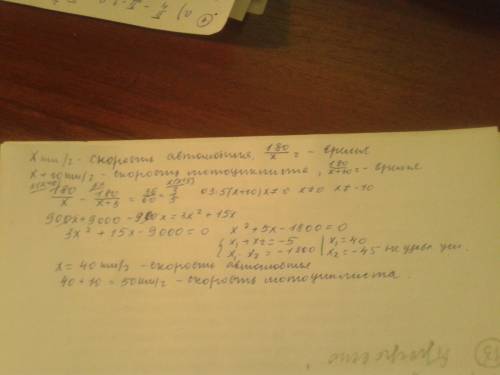 x км/ч - скорость автомобиля, 180/x - время
x+10 км/ч - скорость мотоциклиста, 180/x+10 - время
180/x - 180/x+5 = 36/60 = 3/5 ОЗ: 5(x+10)x≠0 x≠0 x≠-10
900x+9000-900x=3x²+15x
3x²+15x-9000=0 x²+5x-1800=0
{x₁+x₂=-5 | x₁=40
x₁·x₂=-1800 | x₂=-45 не удов. усл.
x=40 км/ч - скорость автомобиля
40+10=50 км/ч - скорость мотоциклиста.